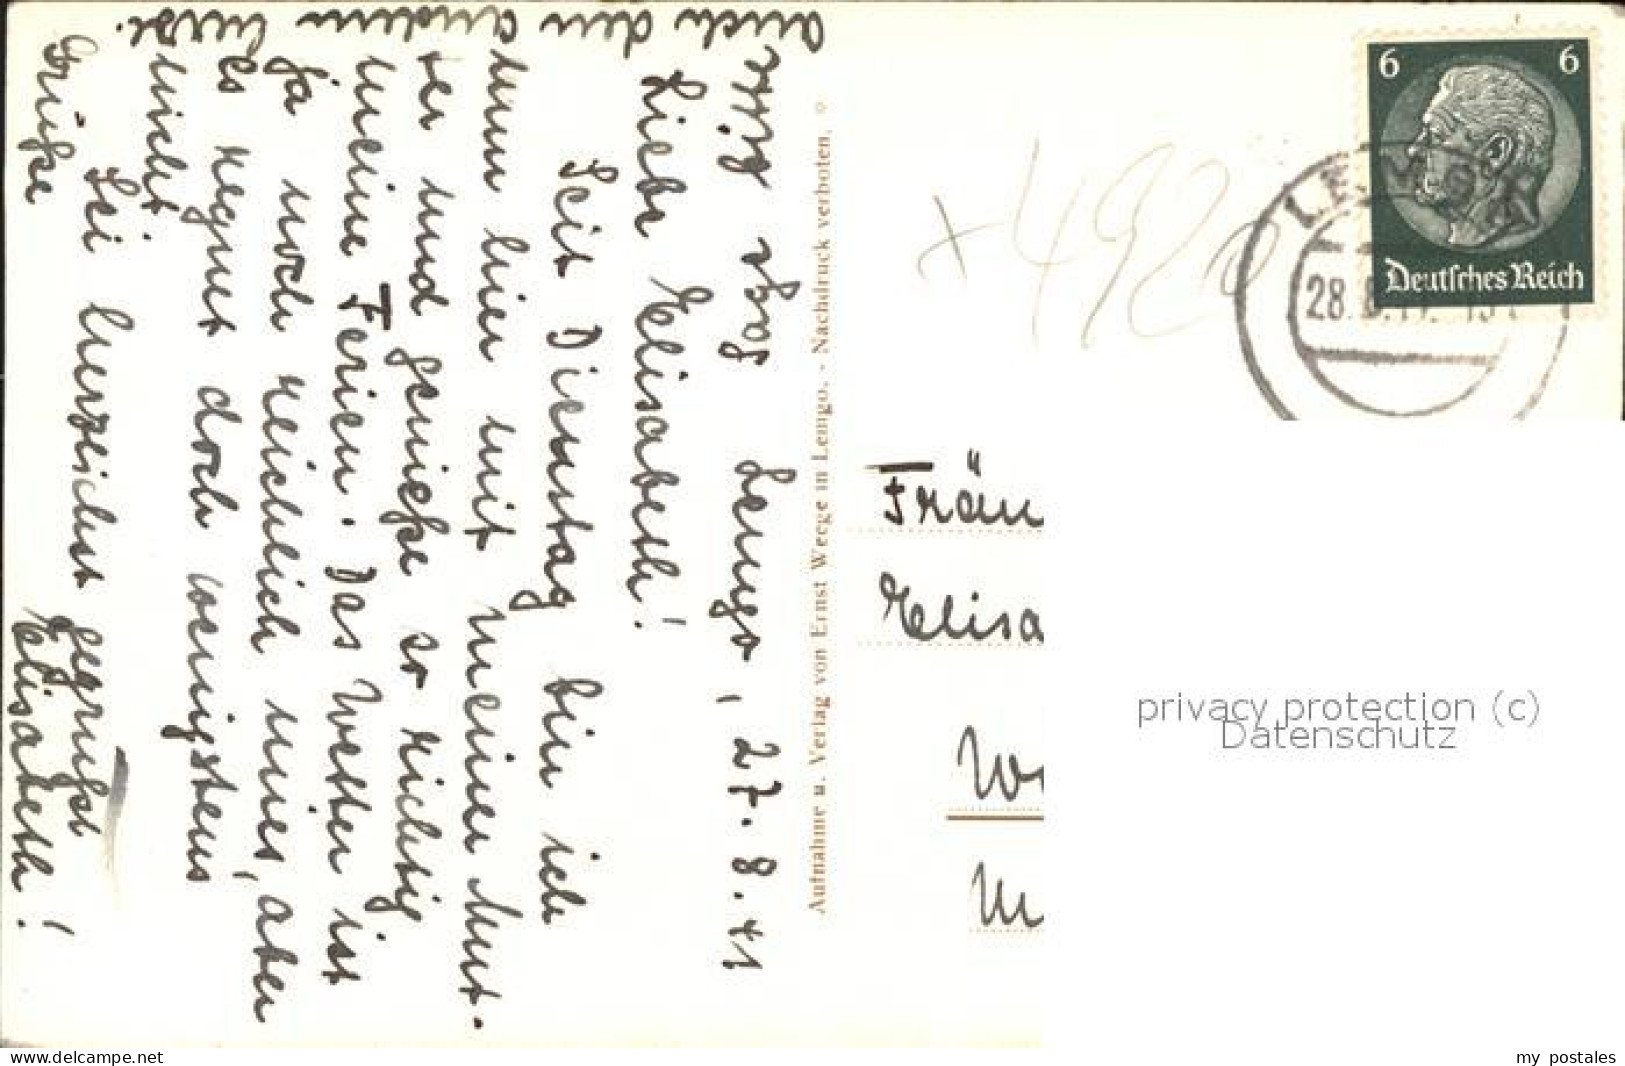 Lemgo, 27. 8. 41
Liebe Elisabeth!
Seit Dienstag bin ich
nun hier mit meiner Mut-
ter und genieße so richtig
meine Ferien. Das Wetter ist
ja noch reichlich mies, aber
es regnet doch wenigstens
nicht.
Sei herzlichst gegrüßt
Elisabeth!
Grüße
auch den andern herzl.
Aufnahme u. Verlag von Ernst Weege in Lemgo. - Nachdruck verboten.
+ 492
6 6
Deutsches Reich
28.
Fräu
Elisa
privacy protection (c)
Datenschutz
www.delcampe.net
my postales